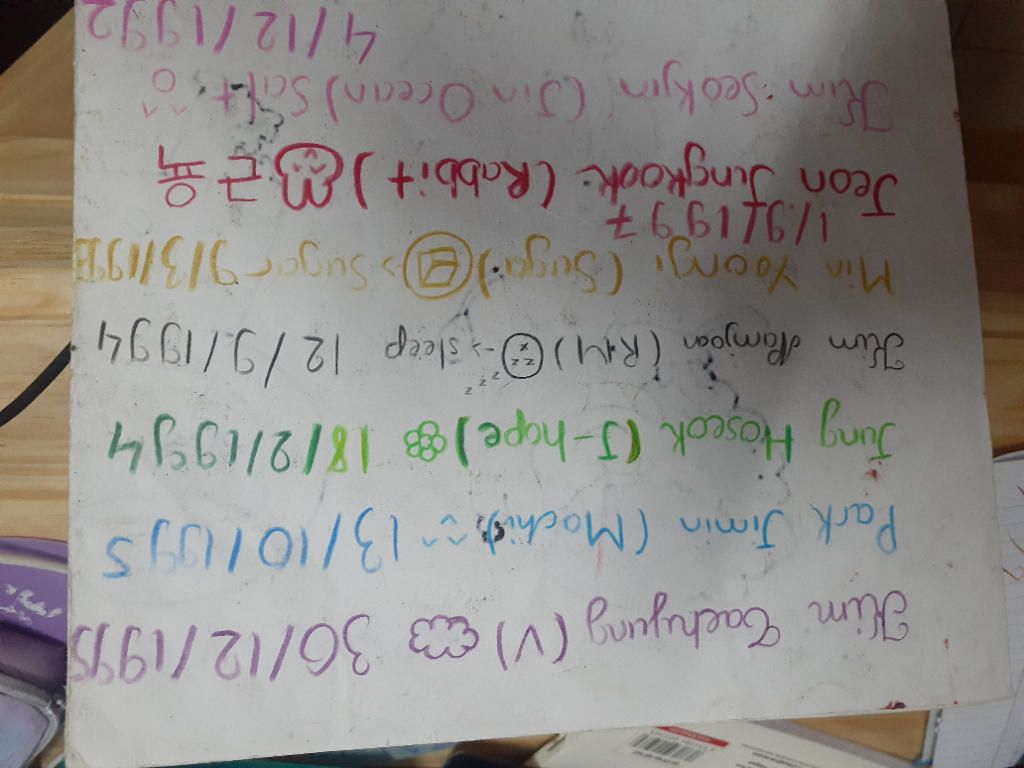 Kim Taehyung (V) 30/12/1995
Park Jimin (Mochi) ^^ 13/10/1995
Jung Hoseok (J-hope) 18/2/1994
Kim Namjoon (RM) zzz -> sleep 12/9/1994
Min Yoongi (Suga) -> Sugar 9/3/1993
1/9/1997
Jeon Jungkook (Rabbit)
Kim Seokjin (Jin Ocean) Salt
4/12/1992